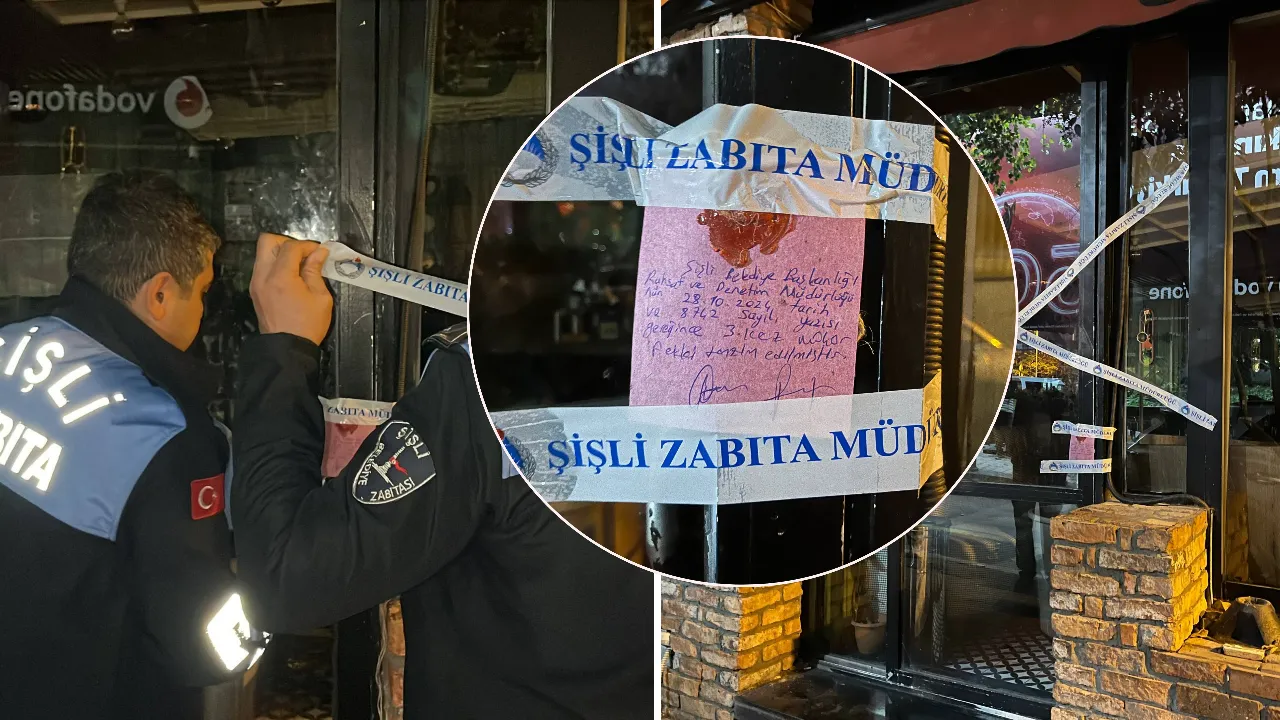 vodafone
ŞİŞLİ ZABITA
ŞİŞLİ
ZABITA
ZABITA MÜ
ŞİŞLİ
BELEDİYE
ZABITASI
ŞİŞLİ ZABITA MÜD
Şişli Belediye Başkanlığı
Ruhsat ve Denetim Müdürlüğü
nün 28.10.2024 tarih
ve 8742 Sayılı yazısı
Gereğince 3. kez mühür
tanzim edilmiştir.
ŞİŞLİ ZABITA MÜD
ŞİŞLİ ZABITA MÜDÜRLÜĞÜ
vodafone